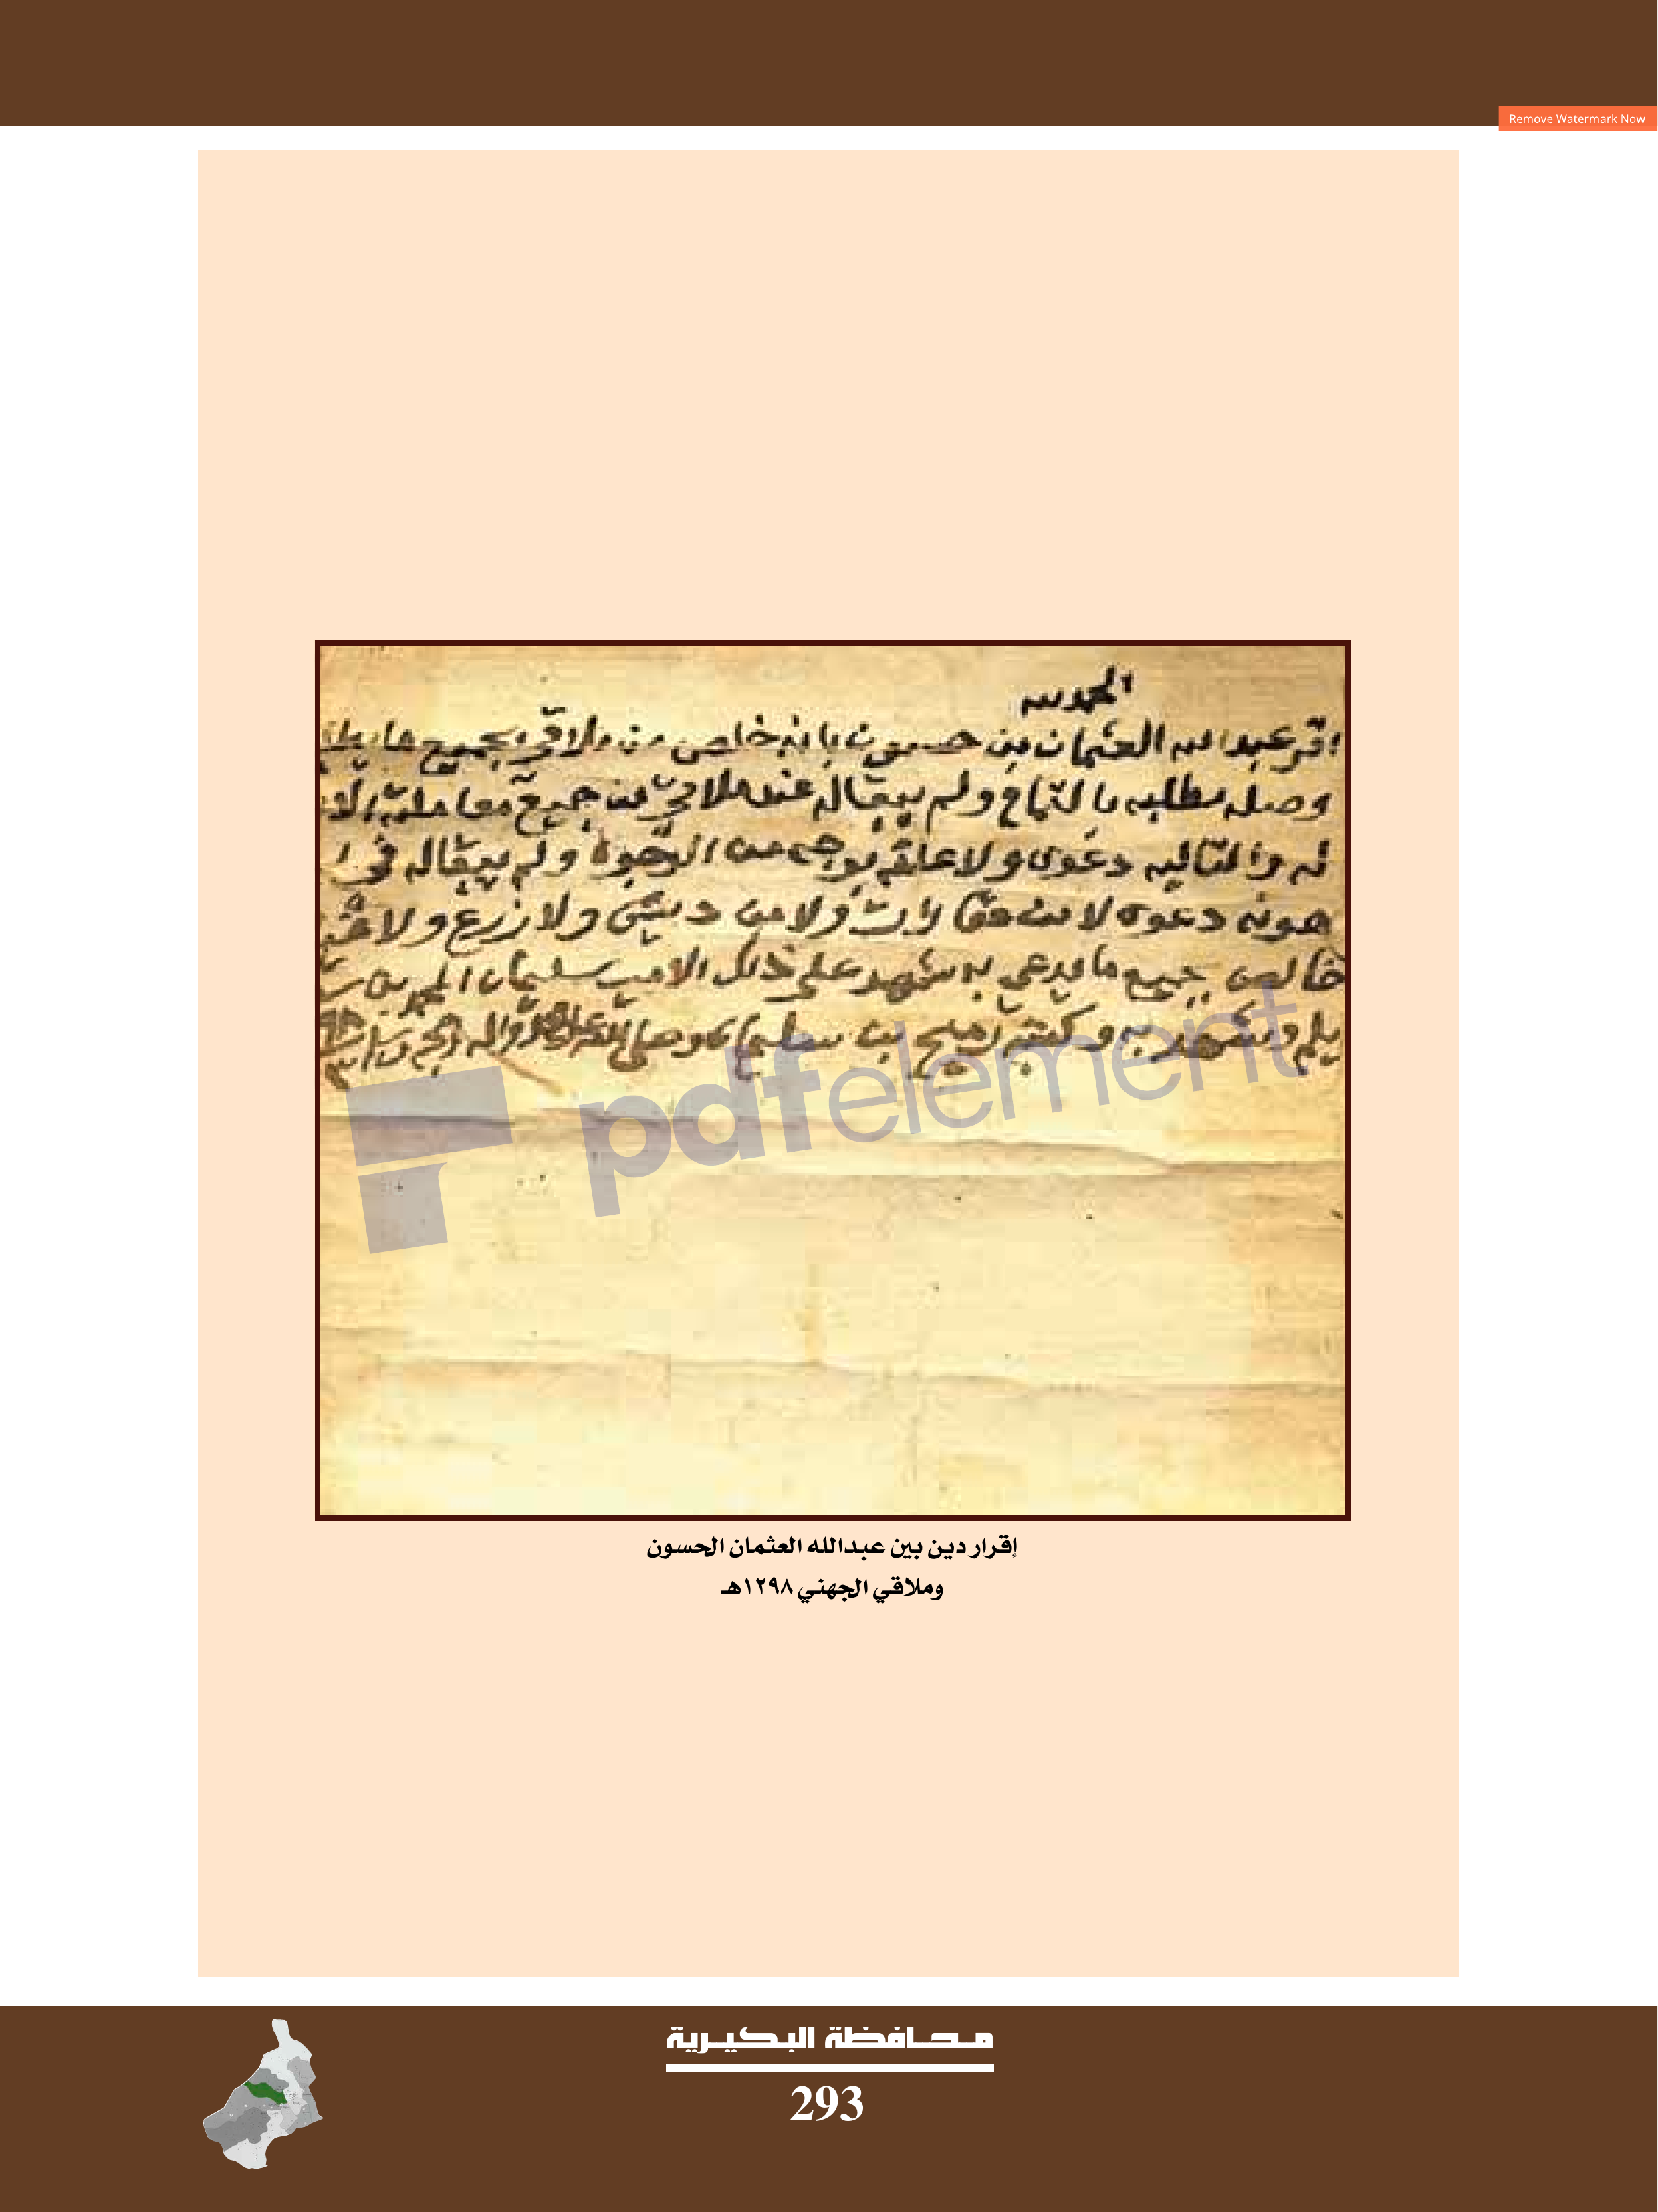 Remove Watermark Now
الحمد لله
اقر عبدالله العثمان بن حسون بانه خلص من ملاقي بجميع ما
وصله مطلبه بالتمام ولم يبقاله عند ملاقي من جميع معاملة
له والتاليه دعوى ولا علقه بوجه من الوجوه ولم يبقاله في
هونه دعوه لا من حق ولا من د ولا زرع ولا
خالص جميع ما يدعي به شهد على ذلك الامير سليمان بن
وشهد به وكتبه بن سليمان وصلى الله على
pdfelement
إقرار دين بين عبدالله العثمان الحسون
وملاقي الجهني ١٢٩٨هـ
محافظة البكيرية
293